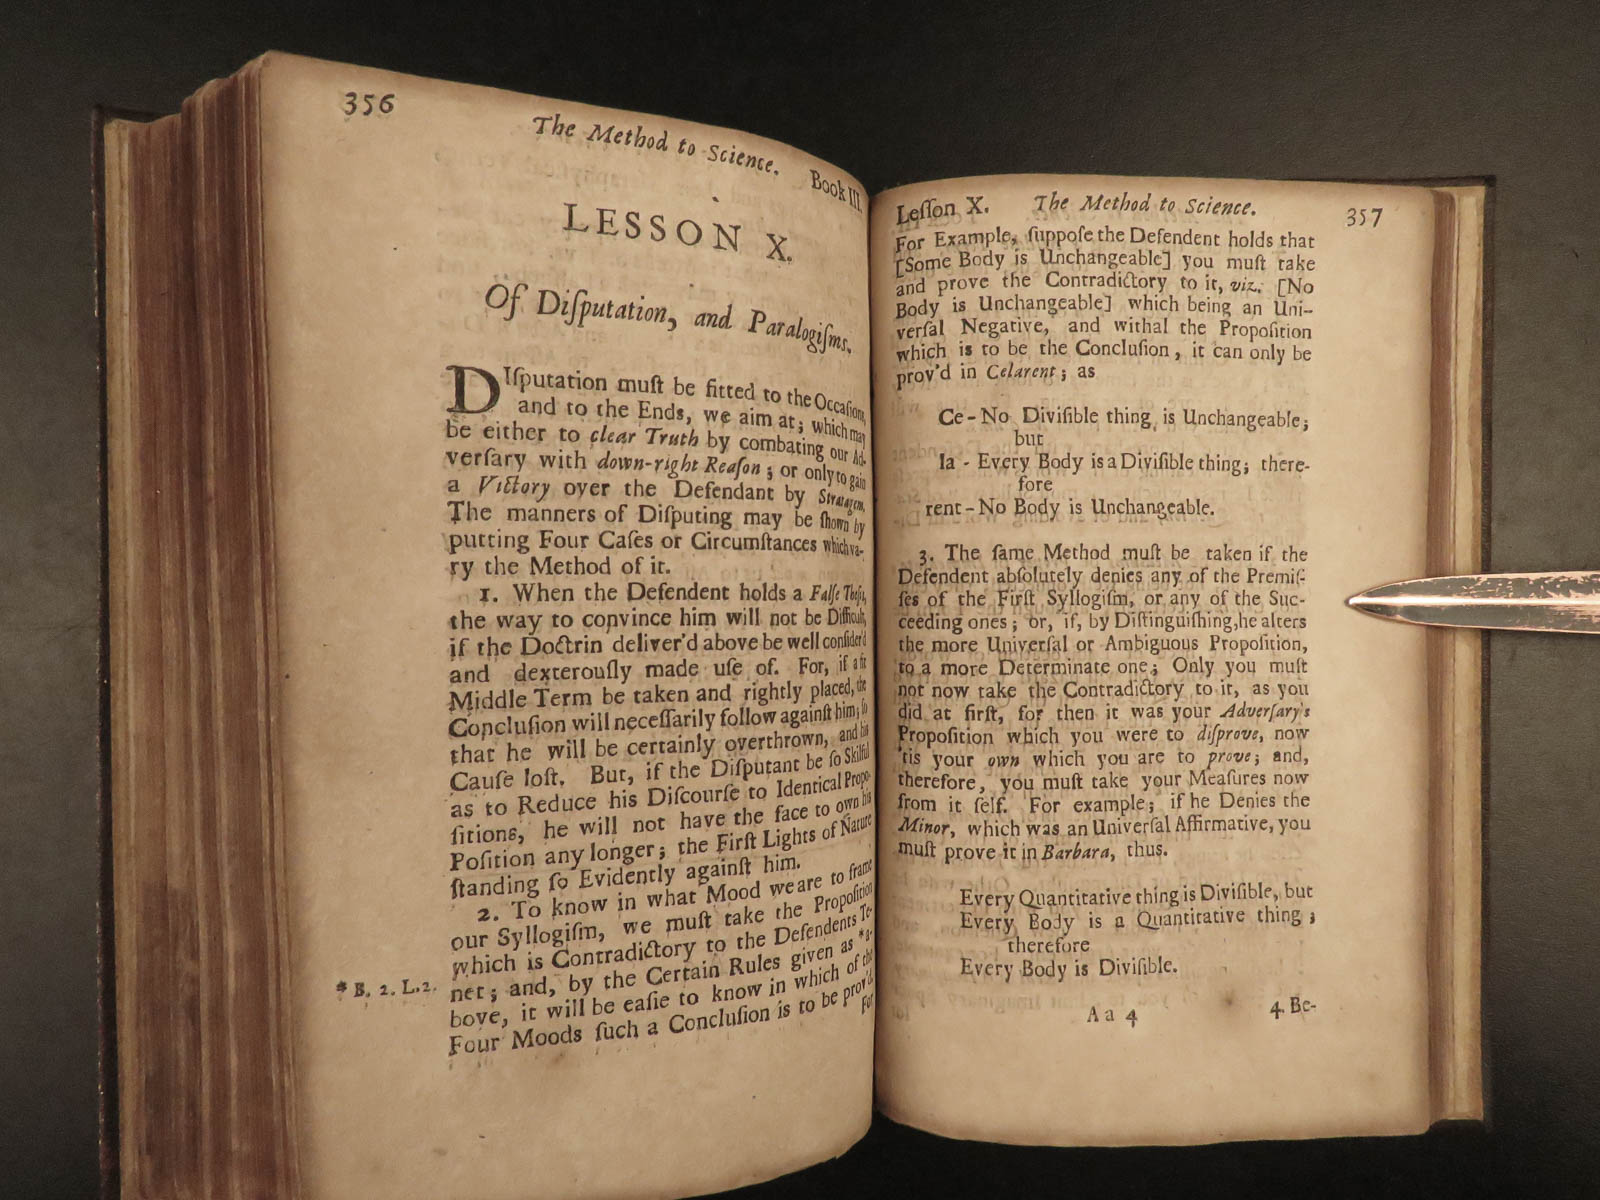 356
The Method to Science. Book III.
LESSON X.
Of Diſputation, and Paralogiſms.
DIſputation muſt be fitted to the Occaſions,
and to the Ends, we aim at; which may
be either to clear Truth by combating our Ad-
verſary with down-right Reaſon; or only to gain
a Victory over the Defendant by Stratagem.
The manners of Diſputing may be ſhown by
putting Four Caſes or Circumſtances which va-
ry the Method of it.
1. When the Defendent holds a Falſe Theſis,
the way to convince him will not be Difficult,
if the Doctrin deliver'd above be well conſider'd
and dexterouſly made uſe of. For, if a fit
Middle Term be taken and rightly placed, the
Concluſion will neceſſarily follow againſt him; ſo
that he will be certainly overthrown, and his
Cauſe loſt. But, if the Diſputant be ſo Skilful
as to Reduce his Diſcourſe to Identical Propo-
ſitions, he will not have the face to own his
Poſition any longer; the Firſt Lights of Nature
ſtanding ſo Evidently againſt him.
2. To know in what Mood we are to frame
our Syllogiſm, we muſt take the Propoſition
which is Contradictory to the Defendents Te-
net; and, by the Certain Rules given as *a-
* B. 2. L. 2.
bove, it will be eaſie to know in which of the
Four Moods ſuch a Concluſion is to be prov'd.
For
Leſſon X. The Method to Science. 357
For Example, ſuppoſe the Defendent holds that
[Some Body is Unchangeable] you muſt take
and prove the Contradictory to it, viz. [No
Body is Unchangeable] which being an Uni-
verſal Negative, and withal the Propoſition
which is to be the Concluſion, it can only be
prov'd in Celarent; as
Ce - No Diviſible thing is Unchangeable;
but
la - Every Body is a Diviſible thing; there-
fore
rent - No Body is Unchangeable.
3. The ſame Method muſt be taken if the
Defendent abſolutely denies any of the Premiſ-
ſes of the Firſt Syllogiſm, or any of the Suc-
ceeding ones; or, if, by Diſtinguiſhing, he alters
the more Univerſal or Ambiguous Propoſition,
to a more Determinate one; Only you muſt
not now take the Contradictory to it, as you
did at firſt, for then it was your Adverſary's
Propoſition which you were to diſprove, now
'tis your own which you are to prove; and,
therefore, you muſt take your Meaſures now
from it ſelf. For example; if he Denies the
Minor, which was an Univerſal Affirmative, you
muſt prove it in Barbara, thus.
Every Quantitative thing is Diviſible, but
Every Body is a Quantitative thing;
therefore
Every Body is Diviſible.
A a 4
4. Be-